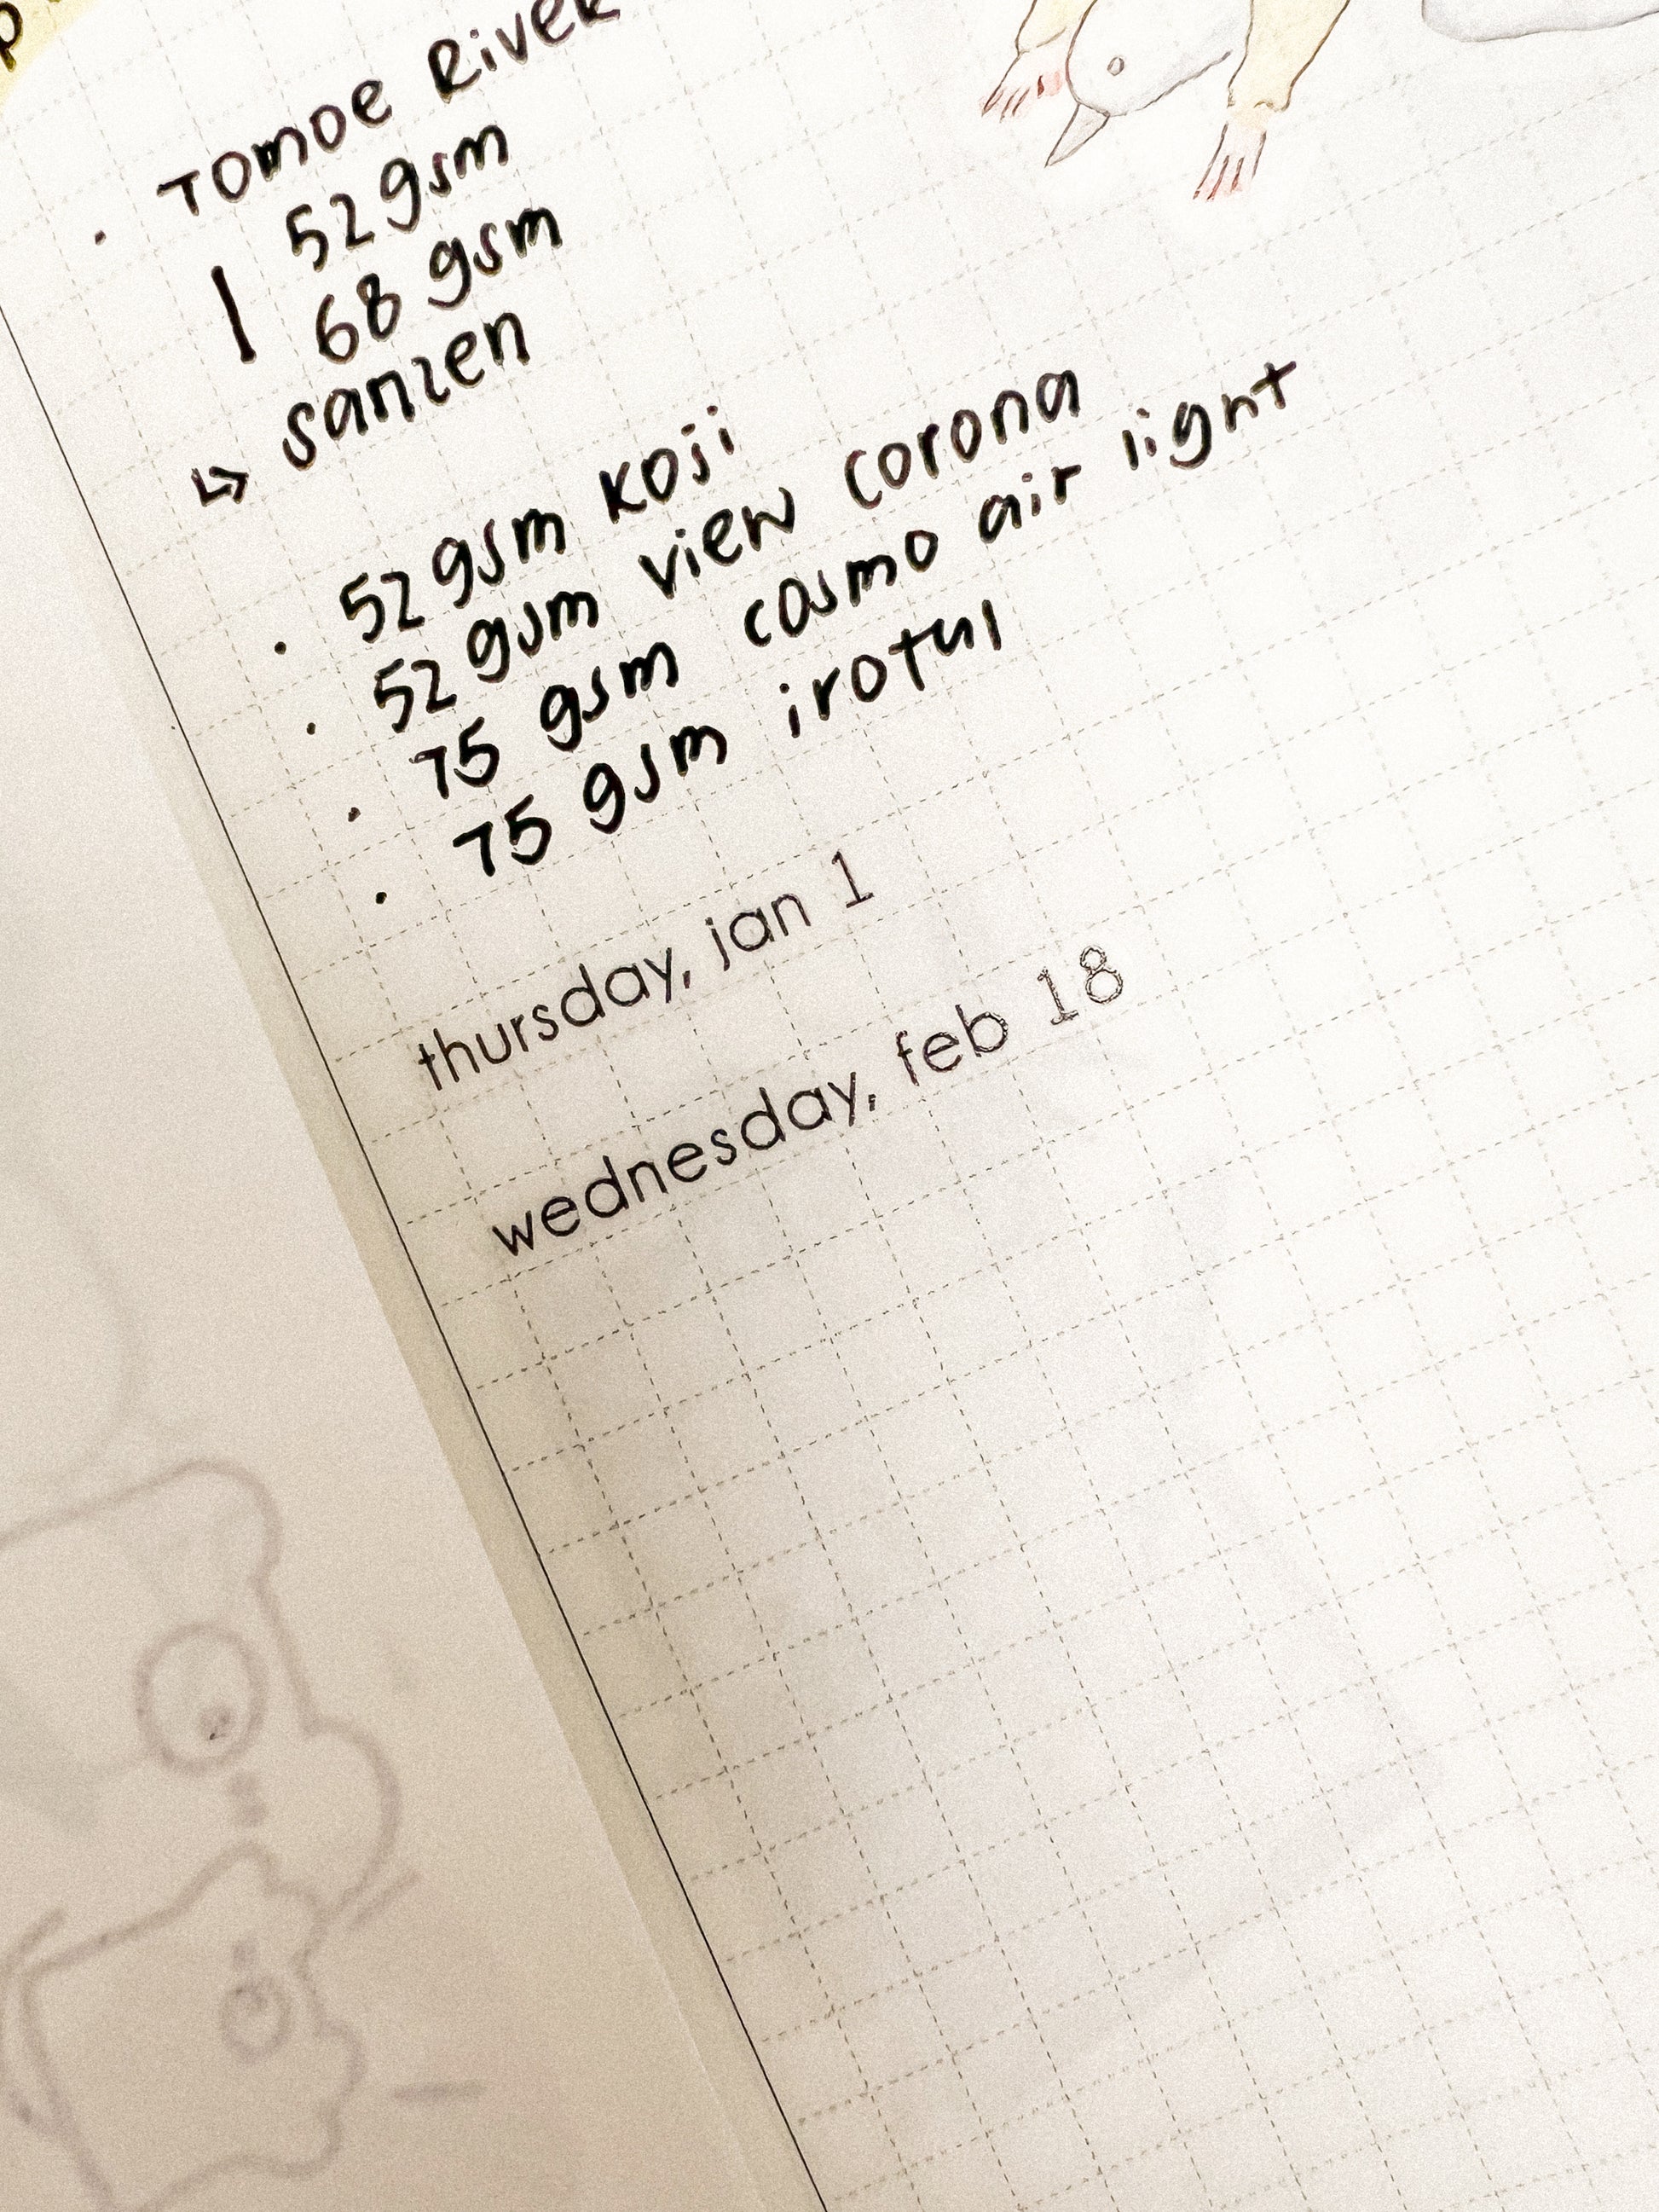 • Tomoe River
52 gsm
68 gsm
↳ sanzen
• 52 gsm koji
• 52 gsm view corona
• 75 gsm cosmo air light
• 75 gsm iroful
thursday, jan 1
wednesday, feb 18